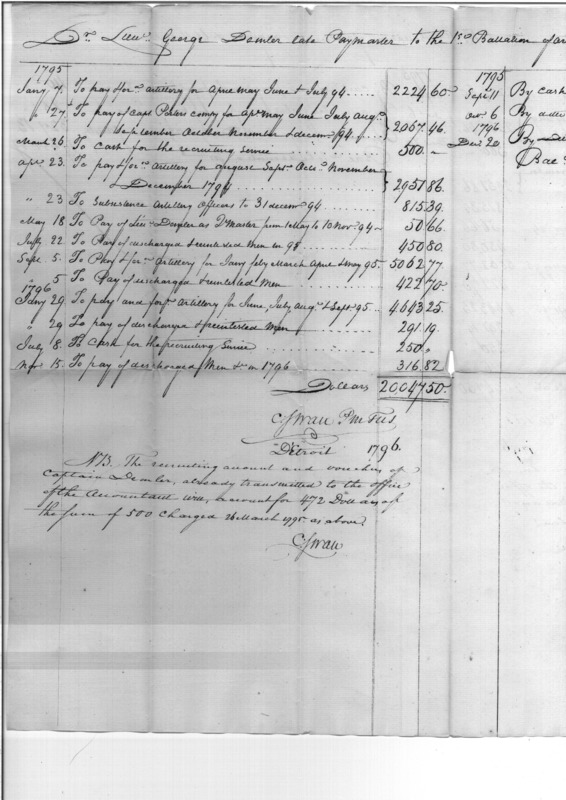 Dr. Lieut. George Demler late Paymaster to the 1st Battalion of
1795
Jany 7. To pay & for. artillery for April may June & July 94 2224 60
" 27 To pay of Capt Peters compy for Apl may June July augt
September October November & decemr. 94 2067.46
March 26 To Cash for the recruiting service 500.–
apr. 23. To pay & for. Artillery for august Septr. Octo. November
& December 1794 2957 86
" 23 To Subsistance Artillery Officers to 31 decemr 94 815.39
May 18 To Pay of Lieut Demler as Qr Master from 1 May to 10 Novr. 94 50 66
22 To Pay of discharged & reinlisted Men in 95 450 80
Sept. 5. To Pay & for. Artillery for Jany feby March April & may 95 5062.77
" 5 To Pay of discharged & reinlisted Men 422 70
1796
Jany 29 To pay and for. Artillery for June, July augt. & Septr 95 4643 25
" 29 To pay of discharged & reinlisted Men 291 19
July 8. To Cash for the recruiting Service 250 "
Novr 15. To pay of discharged Men &c in 1796 316.82
Dollars 20047 50
C. Swan P M
Detroit 1796.
NB. The recruiting account and vouchers of
Captain Demler, already transmitted to the office
of the Accountant will account for 472 Dollars of
the sum of 500 Charged 26 March 1795 as above.
C. Swan
1795
Sept. 11 By cash
6 By
1796
Decr 20 By